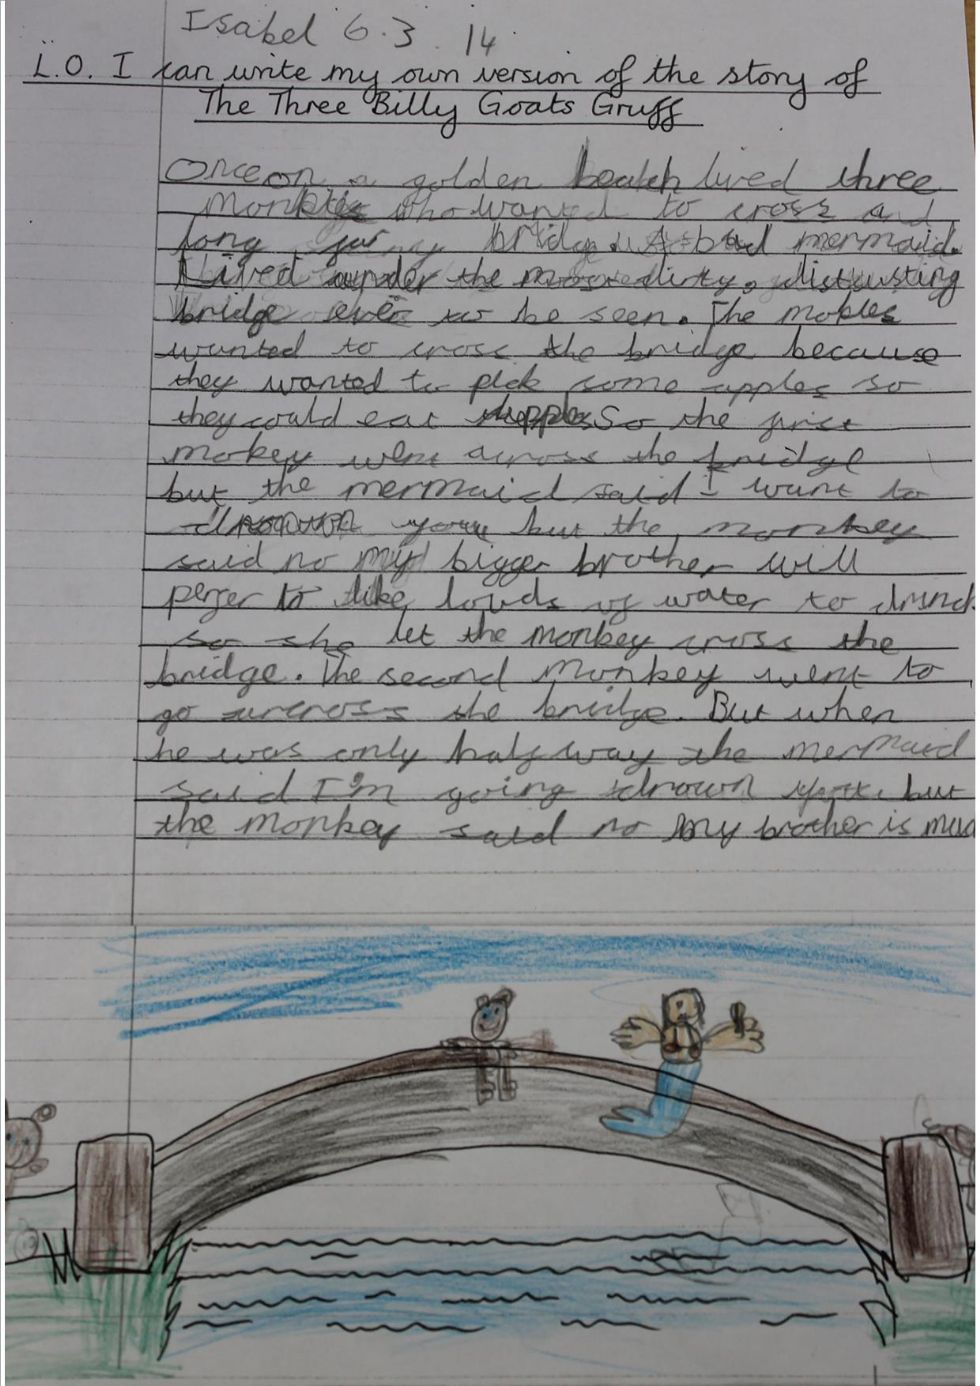 Isabel 6.3.14
L.O. I can write my own version of the story of
The Three Billy Goats Gruff
Once on a golden lived three
who wanted to cross and
long bridge. A bad mermaid.
Lived under the dirty, distusting
bridge ever to be seen. The mokies
wanted to cross the bridge because
they wanted to pick some apples so
they could eat So the first
mokey went across the bridge
but the mermaid said I want to
you but the monkey
said no my bigger brother will
perfer to like louds of water to drinck
so she let the monkey cross the
bridge. The second monkey went to
go the bridge. But when
he was only half way the mermaid
said I'm going drown you. but
the monkey said no my brother is